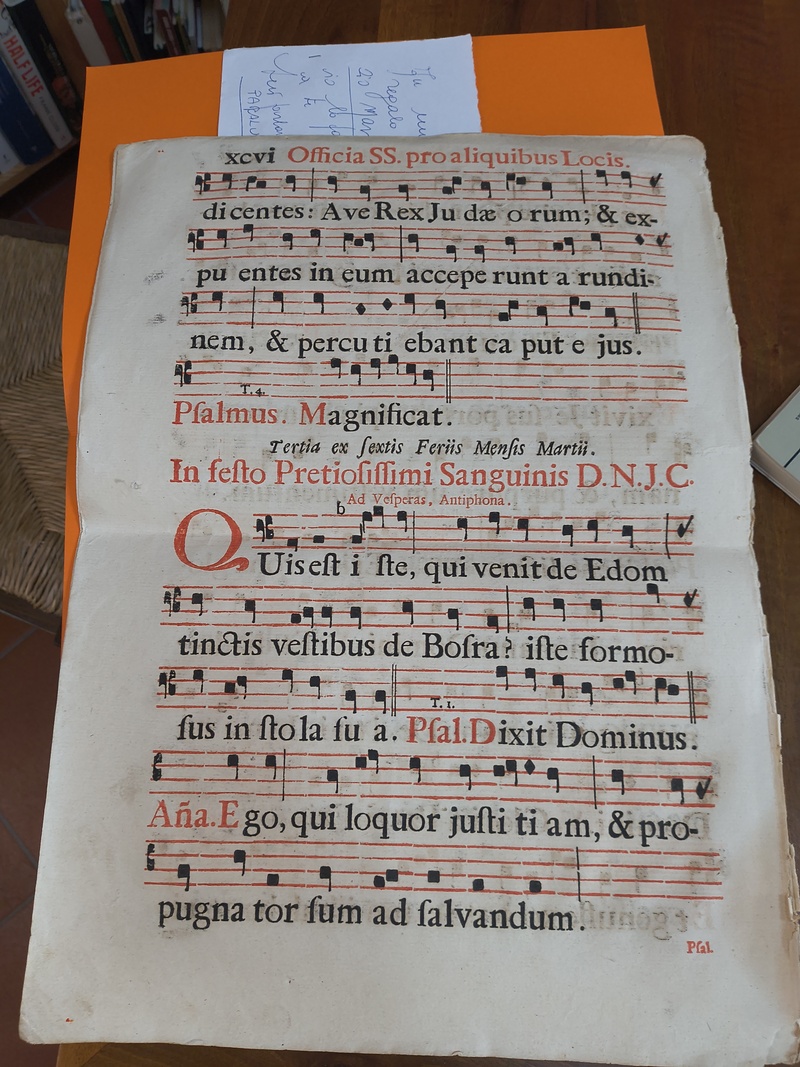 HALF LIFE
regalo
xcvi Officia SS. pro aliquibus Locis.
dicentes: Ave Rex Ju dæ o rum; & ex-
pu entes in eum accepe runt a rundi-
nem, & percu ti ebant ca put e jus.
T. 4.
Pſalmus. Magnificat.
Tertia ex ſextis Feriis Menſis Martii.
In feſto Pretioſiſſimi Sanguinis D. N. J. C.
Ad Veſperas, Antiphona.
b
QUis eſt i ſte, qui venit de Edom
tinctis veſtibus de Boſra? iſte formo-
T. 1.
ſus in ſto la ſu a. Pſal. Dixit Dominus.
Aña. Ego, qui loquor juſti ti am, & pro-
pugna tor ſum ad ſalvandum.
Pſal.